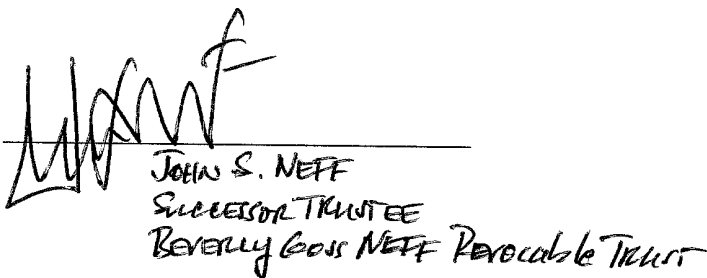 JOHN S. NEFF
SUCCESSOR TRUSTEE
BEVERLY GOSS NEFF Revocable TRUST